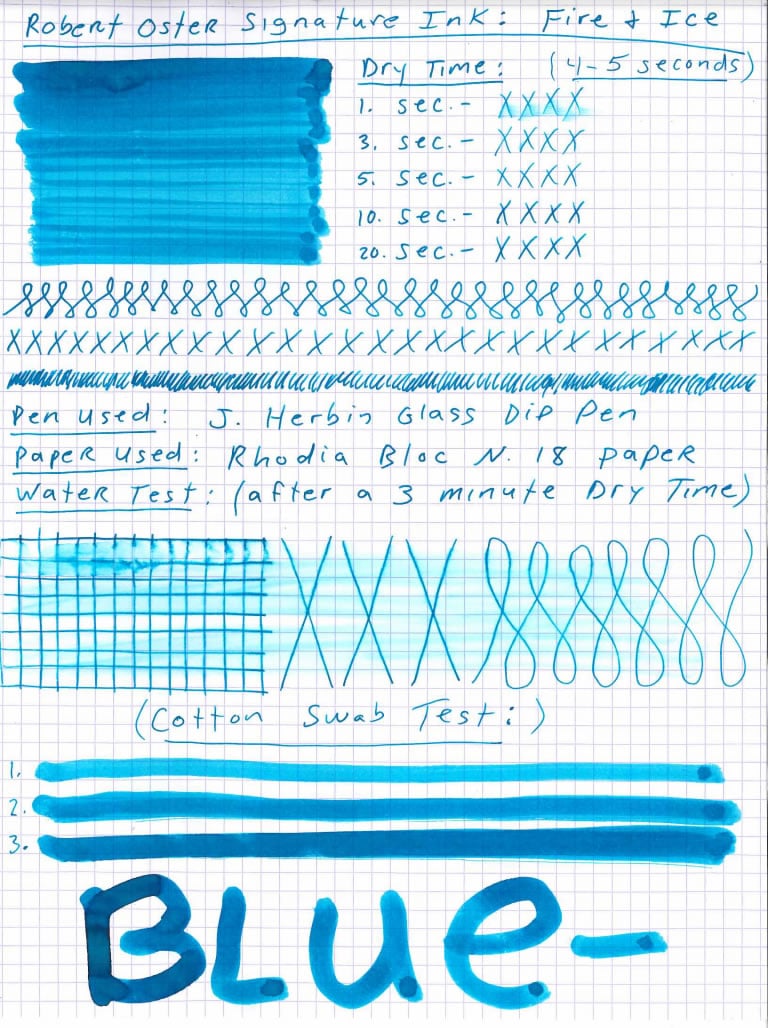 Robert Oster Signature Ink: Fire & Ice
Dry Time: (4-5 seconds)
1. sec.- XXXX
3. sec.- XXXX
5. sec.- XXXX
10. sec.- XXXX
20. sec.- XXXX
Pen Used: J. Herbin Glass Dip Pen
Paper Used: Rhodia Bloc N. 18 paper
Water Test: (after a 3 minute Dry Time)
(Cotton Swab Test:)
1.
2.
3.
BLue-